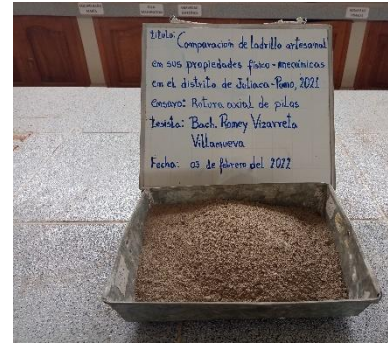 título: Comparación de ladrillo artesanal
en sus propiedades físico-mecánicas
en el distrito de Juliaca-Puno, 2021
Ensayo: Rotura axial de pilas
Tesista: Bach. Romey Vizarreta
Villanueva
Fecha: 03 de febrero del 2022